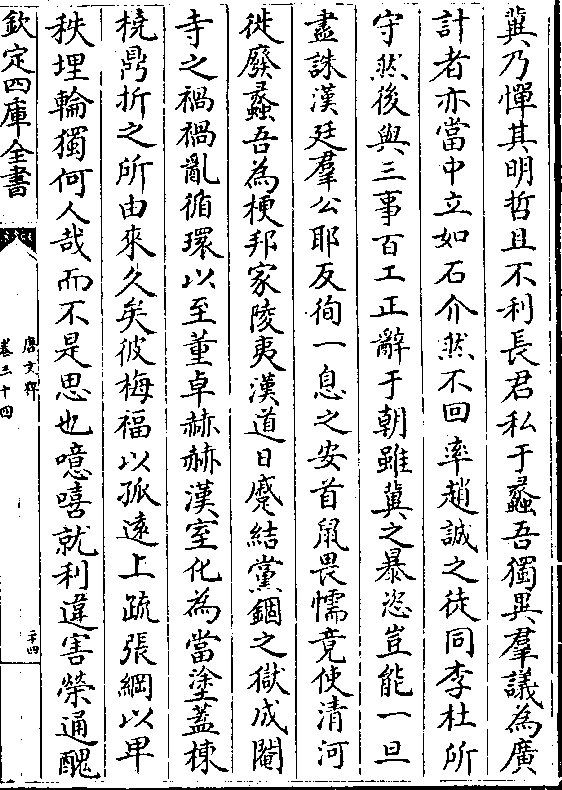 冀乃憚其明哲且不利長君私于蠡吾獨異羣議為廣
計者亦當中立如石介然不回率趙誠之徒同李杜所
守然後與三事百工正辭于朝雖冀之暴恣豈能一旦
盡誅漢廷羣公耶反徇一息之安首鼠畏懦竟使清河
徙廢蠡吾為梗邦家陵夷漢道日蹙結黨錮之獄成閹
寺之禍禍亂循環以至董卓赫赫漢室化為當塗蓋棟
橈鼎折之所由來久矣彼梅福以孤遠上疏張綱以卑
秩埋輪獨何人哉而不是思也噫嘻就利違害榮通醜
欽定四庫全書
唐文粹
卷三十四
二十四